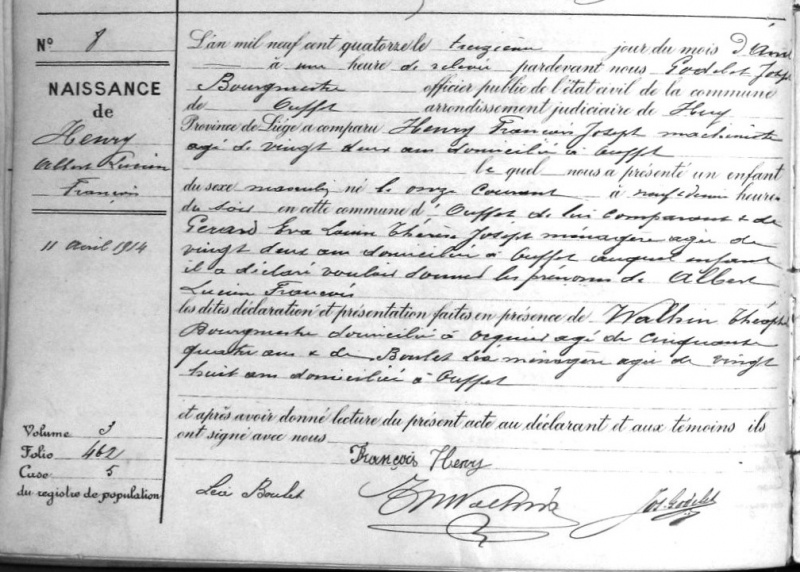 Nº 8
NAISSANCE
de
Henry
Albert Lucien
François
11 avril 1914
Volume 3
Folio 462
Case 5
du registre de population
L'an mil neuf cent quatorze le treizième jour du mois d'Avri
à une heure de relevée pardevant nous Godelet Josep
Bourgmestre officier public de l'état civil de la commune
de Ouffet arrondissement judiciaire de Huy
Province de Liége a comparu Henry François Joseph machiniste
agé de vingt deux ans domicilié à Ouffet
le quel nous a présenté un enfant
du sexe masculin né le onze courant à neuf & demie heures
du soir en cette commune d'Ouffet de lui comparant & de
Gerard Eva Louise Thérèse Joseph ménagère agée de
vingt deux ans domiciliée à Ouffet auquel enfant
il a déclaré vouloir donner les prénoms de Albert
Lucien François
les dites déclaration et présentation faites en présence de Walhin Théoph
Bourgmestre domicilié à agé de cinquante
quatre ans & de Boulet Léa ménagère agée de vingt
huit ans domiciliée à Ouffet
et après avoir donné lecture du présent acte au déclarant et aux témoins ils
ont signé avec nous
François Henry
Léa Boulet Walhin Jos. Godelet